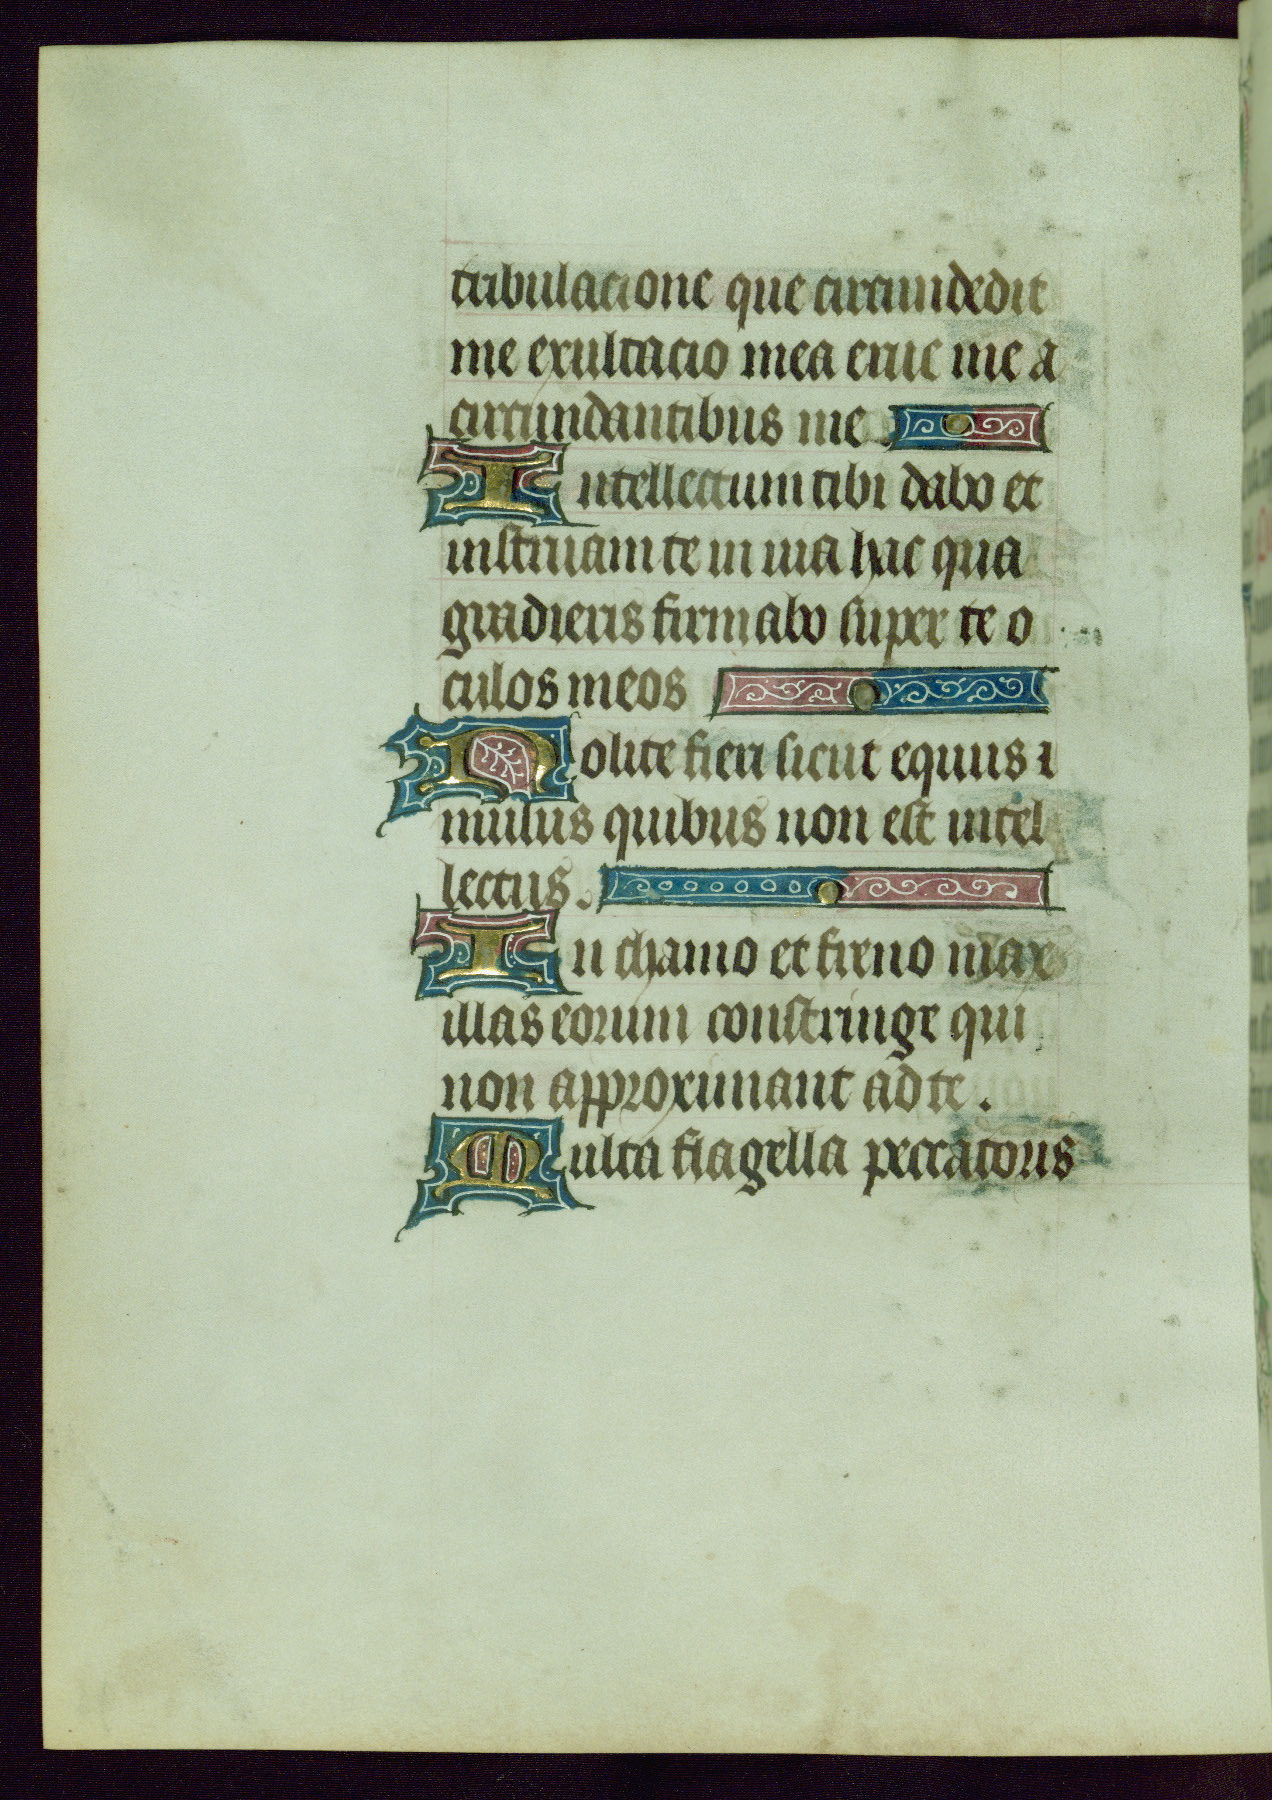 tribulacione que circundedit
me exultacio mea erue me a
circundantibus me.
Intellectum tibi dabo et
instruam te in uia hac qua
gradieris firmabo super te o
culos meos
Nolite fieri sicut equus ⁊
mulus quibus non est intel
lectus.
In chamo et freno max
illas eorum constringe qui
non approximant ad te.
Multa flagella peccatoris